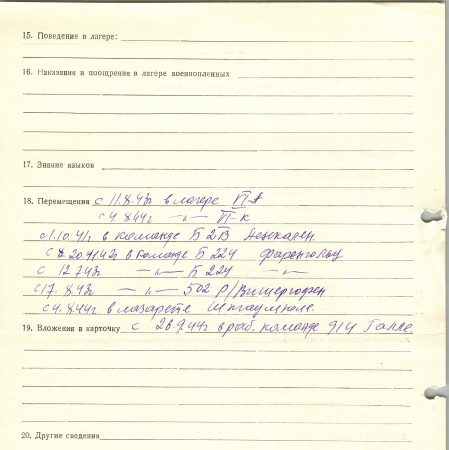 15. Поведение в лагере:
16. Наказания и поощрения в лагере военнопленных
17. Знание языков
18. Перемещения с 11.8.43г в лагере VI-А
с 4.8.44г —„— VI-к
с 1.10.41г в команде Б 2В
с 20.4.43г в команде Б 224 Фаренгольц
с 12.7.43г —„— Б 224 —„—
с 17.8.43г —„— 502 Р/Вишергофен
с 4.8.44г в лазарете
19. Вложения в карточку с 26.9.44г в раб. команде 914 Галле
20. Другие сведения